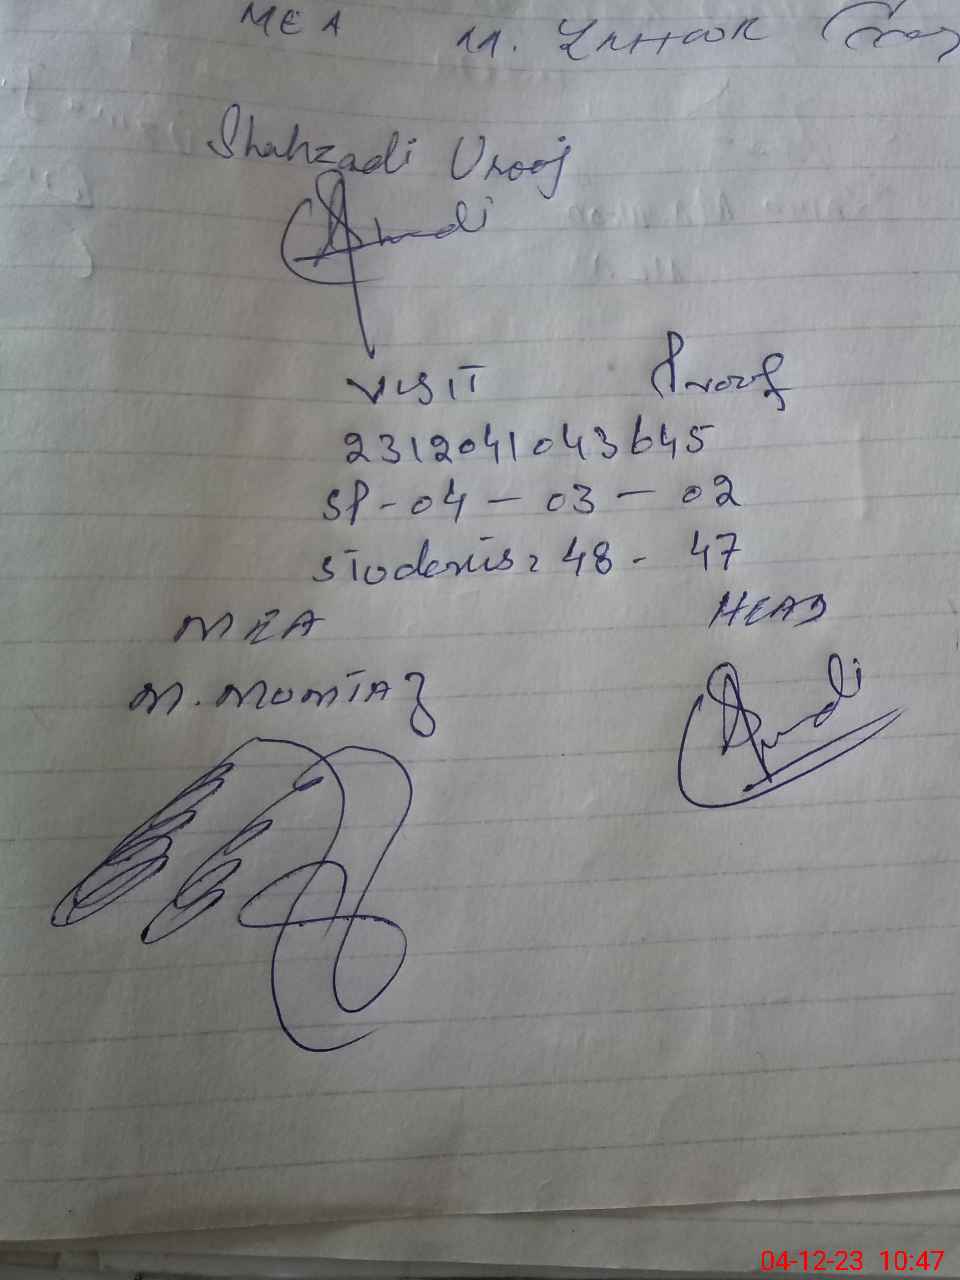 MEA M.
Shahzadi Urooj
VISIT Proof
2312041043645
SP-04-03-02
students: 48 - 47
MEA HEAD
M. MUMTAZ
04-12-23 10:47